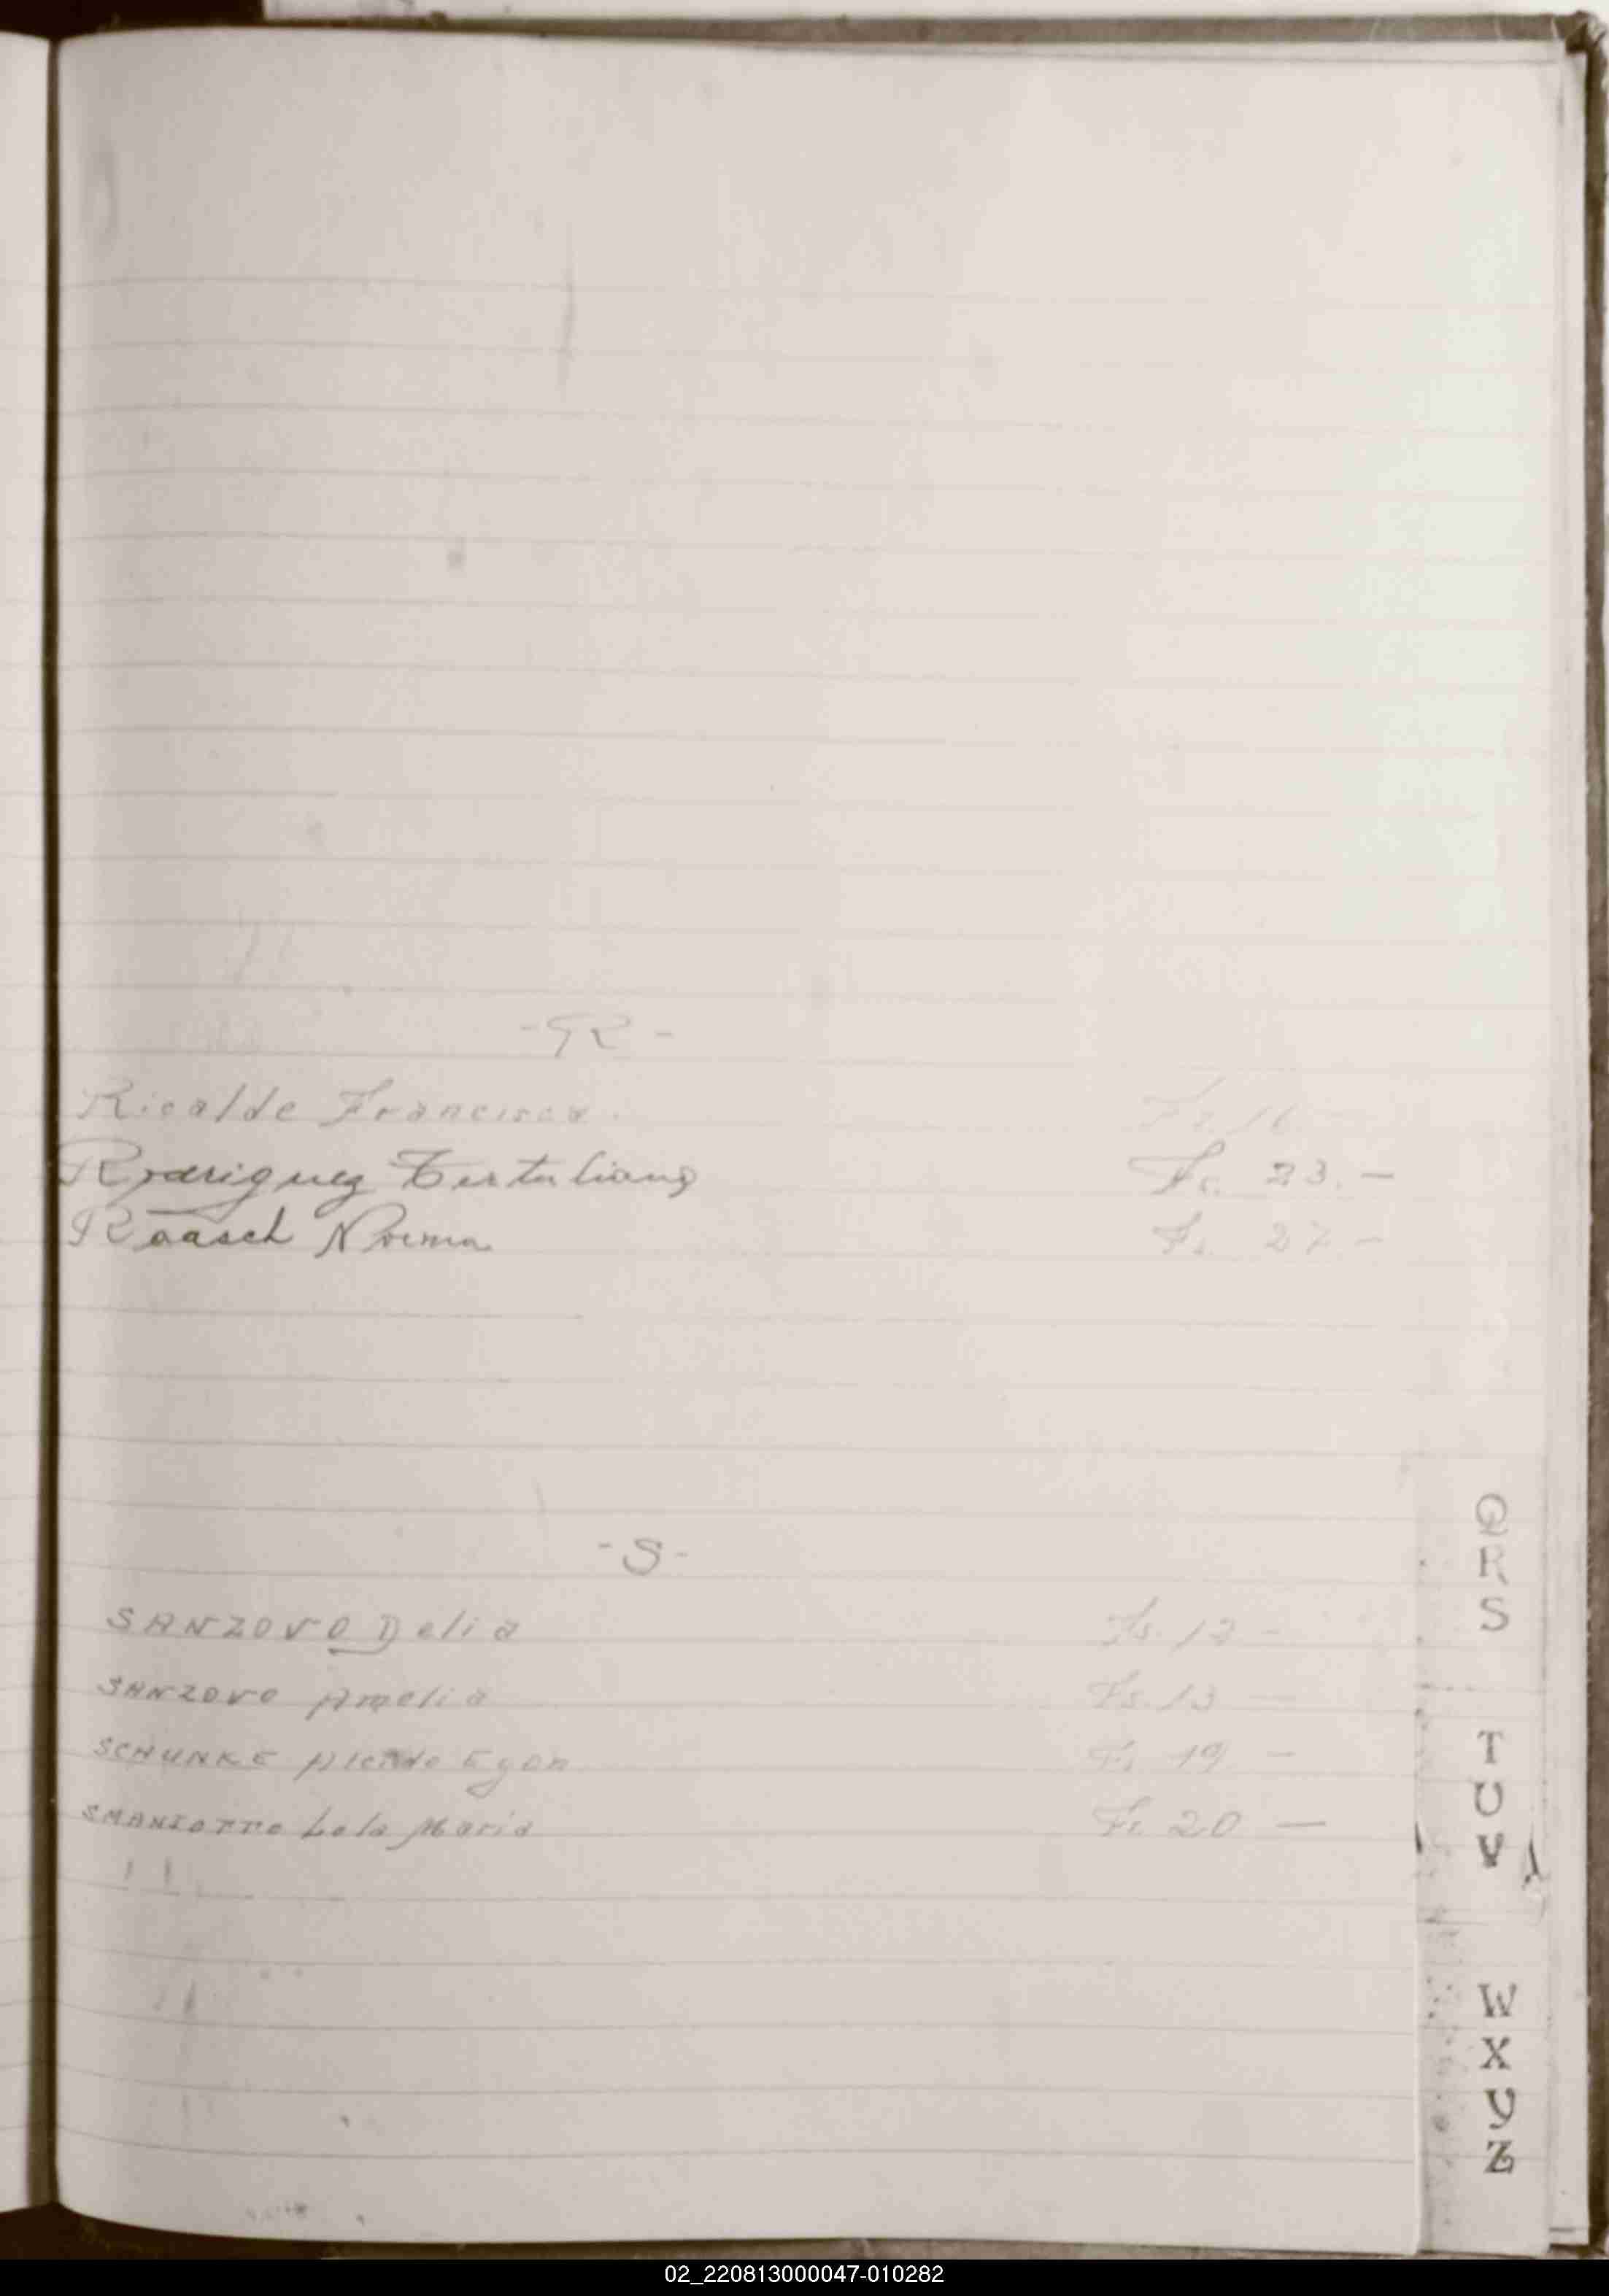 - R -
Ricalde Francisca. Fs. 16 -
Rodriguez Tertuliano Fs. 23. -
Raasch Norma Fs. 27 -
- S -
SANZOVO Delia Fs. 13 -
SANZOVO Amelia Fs. 13 -
SCHUNKE Alcido Egon Fs 19 -
SMANIOTTO Lola Maria Fs. 20 -
Q
R
S
T
U
V
W
X
Y
Z
02_220813000047-010282